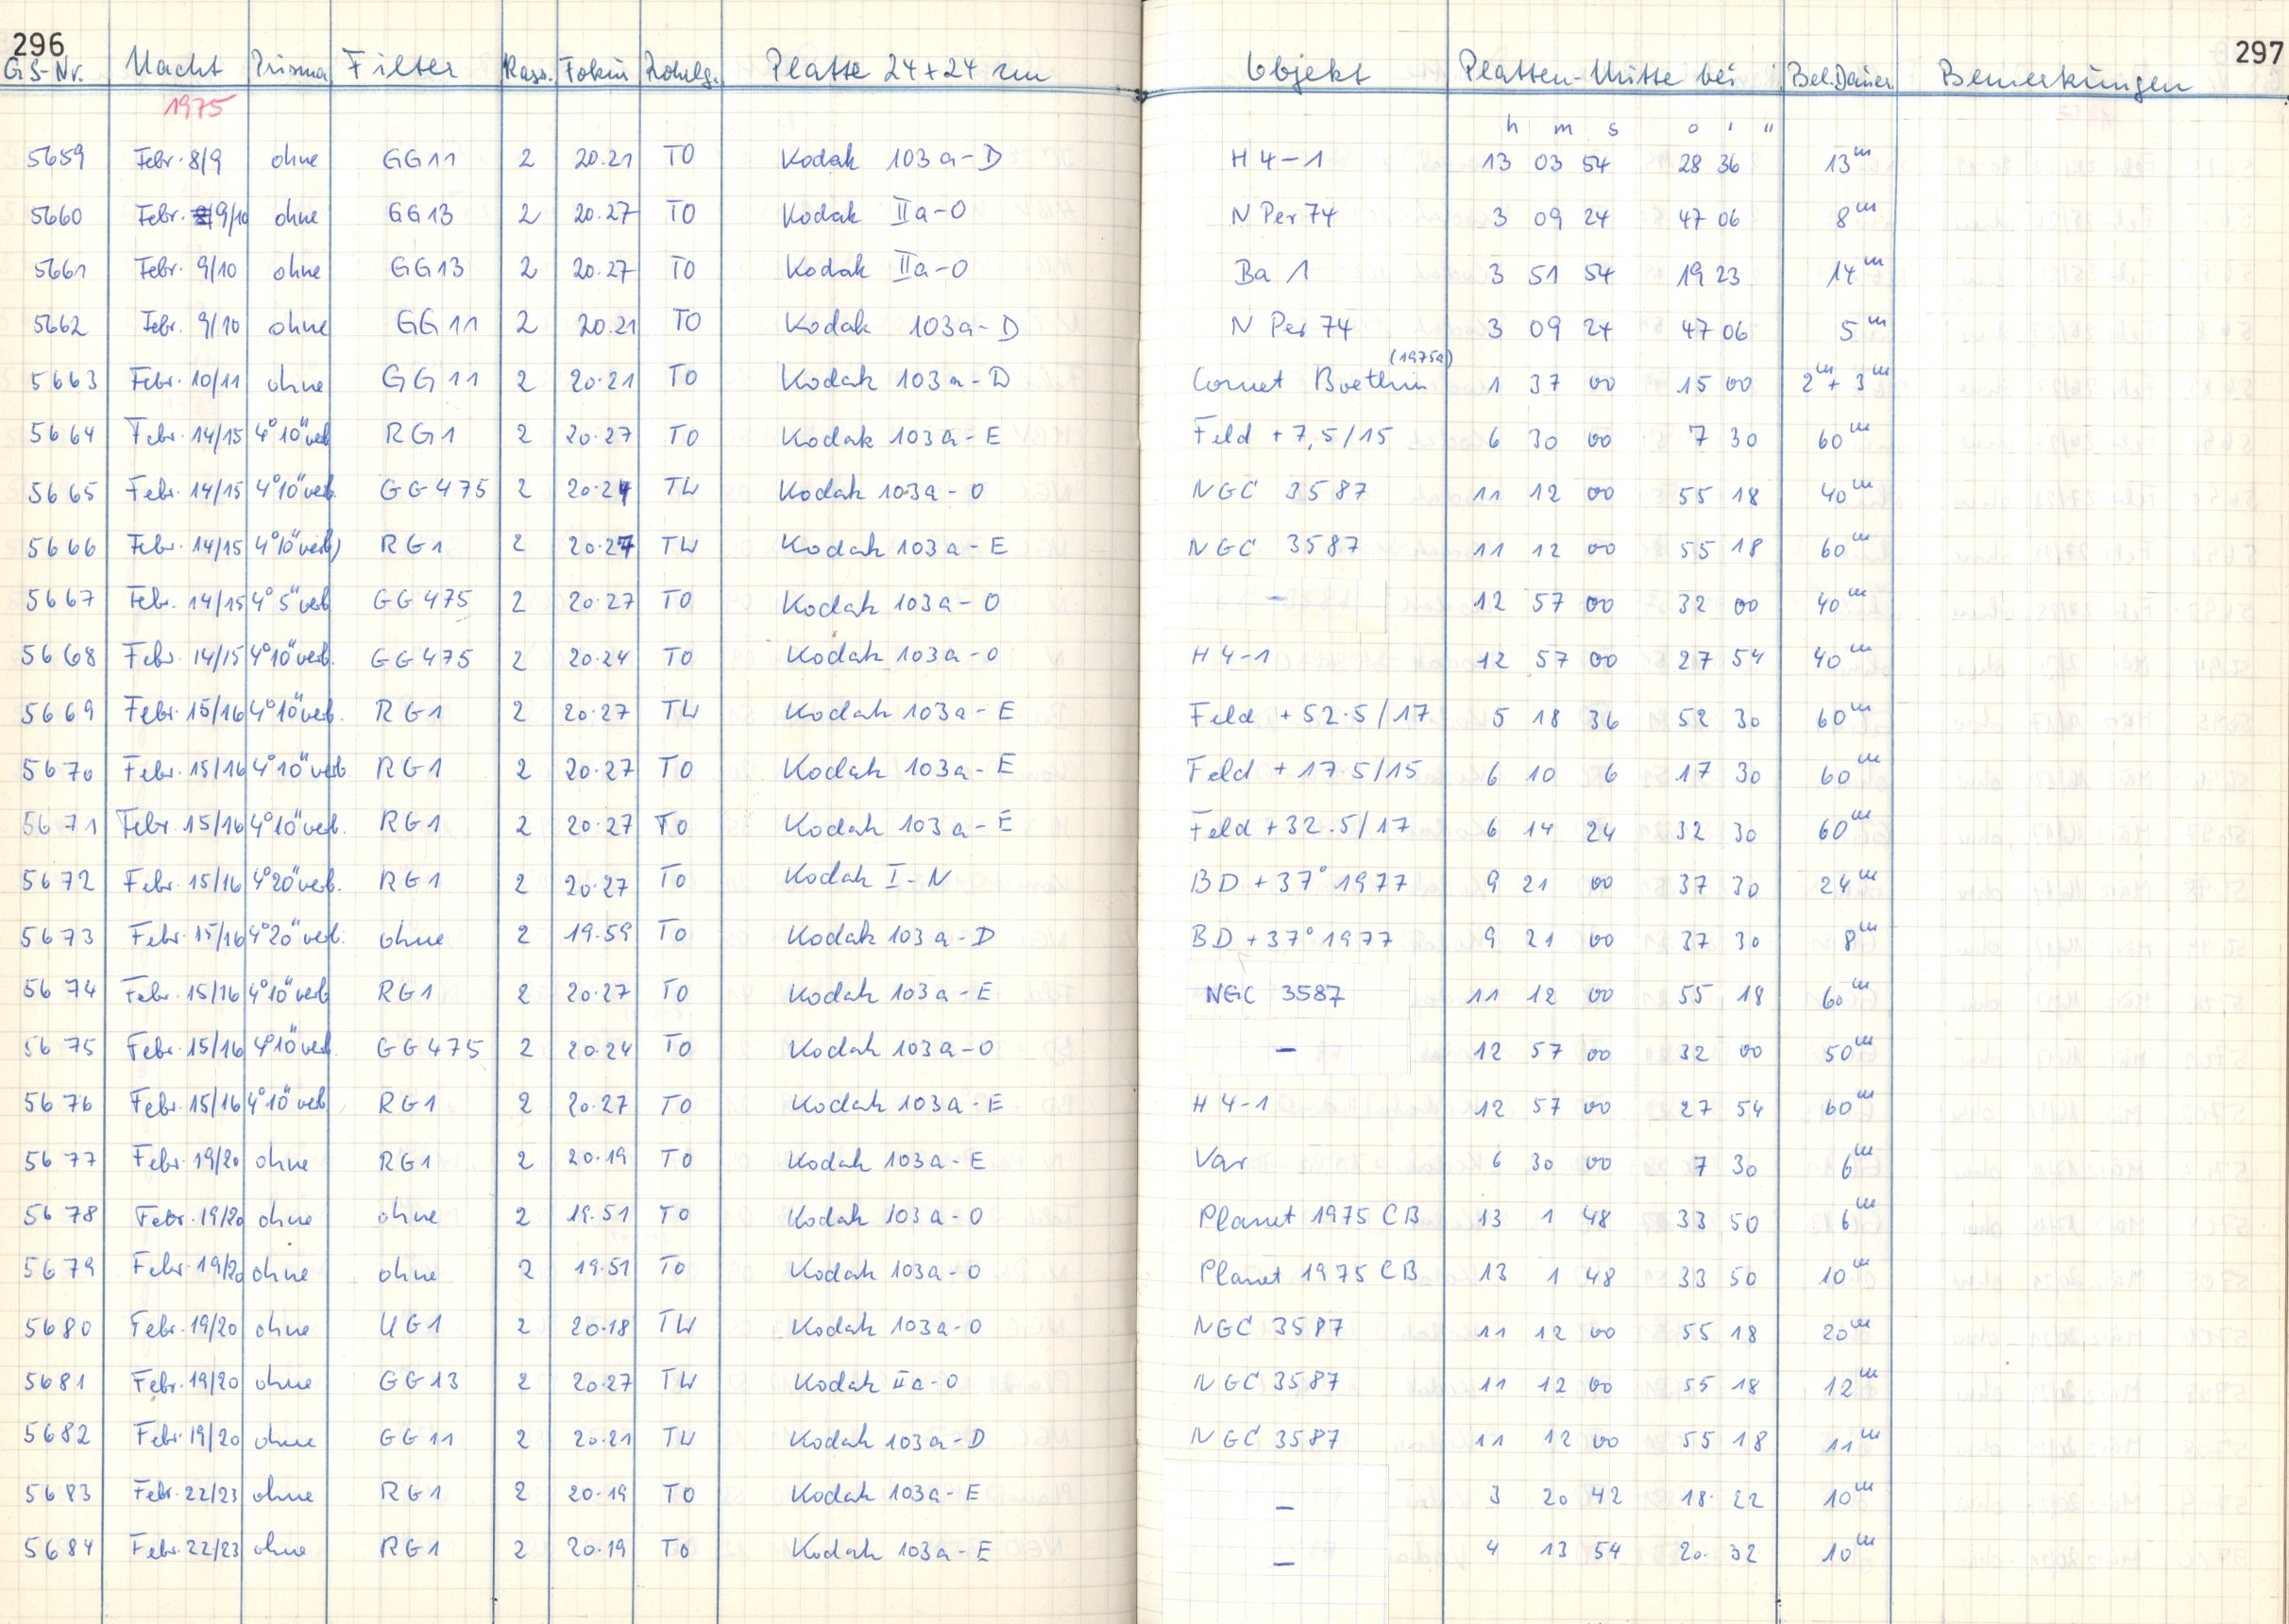 296
297
GS-Nr. Nacht Prisma Filter Kass. Fokus Platte 24+24 cm Objekt Platten-Mitte bei Bel.Dauer Bemerkungen
1975
h m s o ' "
5659 Febr. 8/9 ohne GG11 2 20.21 TO Kodak 103a-D H4-1 13 03 54 28 36 13m
5660 Febr. 9/10 ohne GG13 2 20.27 TO Kodak IIa-O N Per 74 3 09 24 47 06 8m
5661 Febr. 9/10 ohne GG13 2 20.27 TO Kodak IIa-O Ba 1 3 51 54 19 23 14m
5662 Febr. 9/10 ohne GG11 2 20.21 TO Kodak 103a-D N Per 74 3 09 24 47 06 5m
(1975a)
5663 Febr. 10/11 ohne GG11 2 20.21 TO Kodak 103a-D Comet Boethin 1 37 00 15 00 2m + 3m
5664 Febr. 14/15 4°10" verb RG1 2 20.27 TO Kodak 103a-E Feld +7,5/15 6 30 00 7 30 60m
5665 Febr. 14/15 4°10" verb. GG475 2 20.24 TW Kodak 103a-O NGC 3587 11 12 00 55 18 40m
5666 Febr. 14/15 4°10" verb) RG1 2 20.27 TW Kodak 103a-E NGC 3587 11 12 00 55 18 60m
5667 Febr. 14/15 4°5" verb GG475 2 20.27 TO Kodak 103a-O - 12 57 00 32 00 40m
5668 Febr. 14/15 4°10" verb. GG475 2 20.24 TO Kodak 103a-O H4-1 12 57 00 27 54 40m
5669 Febr. 15/16 4°10" verb. RG1 2 20.27 TW Kodak 103a-E Feld +52.5/17 5 18 36 52 30 60m
5670 Febr. 15/16 4°10" verb. RG1 2 20.27 TO Kodak 103a-E Feld +17.5/15 6 10 6 17 30 60m
5671 Febr. 15/16 4°10" verb. RG1 2 20.27 TO Kodak 103a-E Feld +32.5/17 6 14 24 32 30 60m
5672 Febr. 15/16 4°20" verb. RG1 2 20.27 TO Kodak I-N BD +37° 1977 9 21 00 37 30 24m
5673 Febr. 15/16 4°20" verb. ohne 2 19.59 TO Kodak 103a-D BD +37° 1977 9 21 00 37 30 8m
5674 Febr. 15/16 4°10" verb RG1 2 20.27 TO Kodak 103a-E NGC 3587 11 12 00 55 18 60m
5675 Febr. 15/16 4°10" verb. GG475 2 20.24 TO Kodak 103a-O - 12 57 00 32 00 50m
5676 Febr. 15/16 4°10" verb RG1 2 20.27 TO Kodak 103a-E H4-1 12 57 00 27 54 60m
5677 Febr. 19/20 ohne RG1 2 20.19 TO Kodak 103a-E Var 6 30 00 7 30 6m
5678 Febr. 19/20 ohne ohne 2 19.51 TO Kodak 103a-O Planet 1975 CB 13 1 48 33 50 6m
5679 Febr. 19/20 ohne ohne 2 19.51 TO Kodak 103a-O Planet 1975 CB 13 1 48 33 50 10m
5680 Febr. 19/20 ohne UG1 2 20.18 TW Kodak 103a-O NGC 3587 11 12 00 55 18 20m
5681 Febr. 19/20 ohne GG13 2 20.27 TW Kodak IIa-O NGC 3587 11 12 00 55 18 12m
5682 Febr. 19/20 ohne GG11 2 20.21 TW Kodak 103a-D NGC 3587 11 12 00 55 18 11m
5683 Febr. 22/23 ohne RG1 2 20.19 TO Kodak 103a-E - 3 20 42 18. 22 10m
5684 Febr. 22/23 ohne RG1 2 20.19 TO Kodak 103a-E - 4 13 54 20. 32 10m